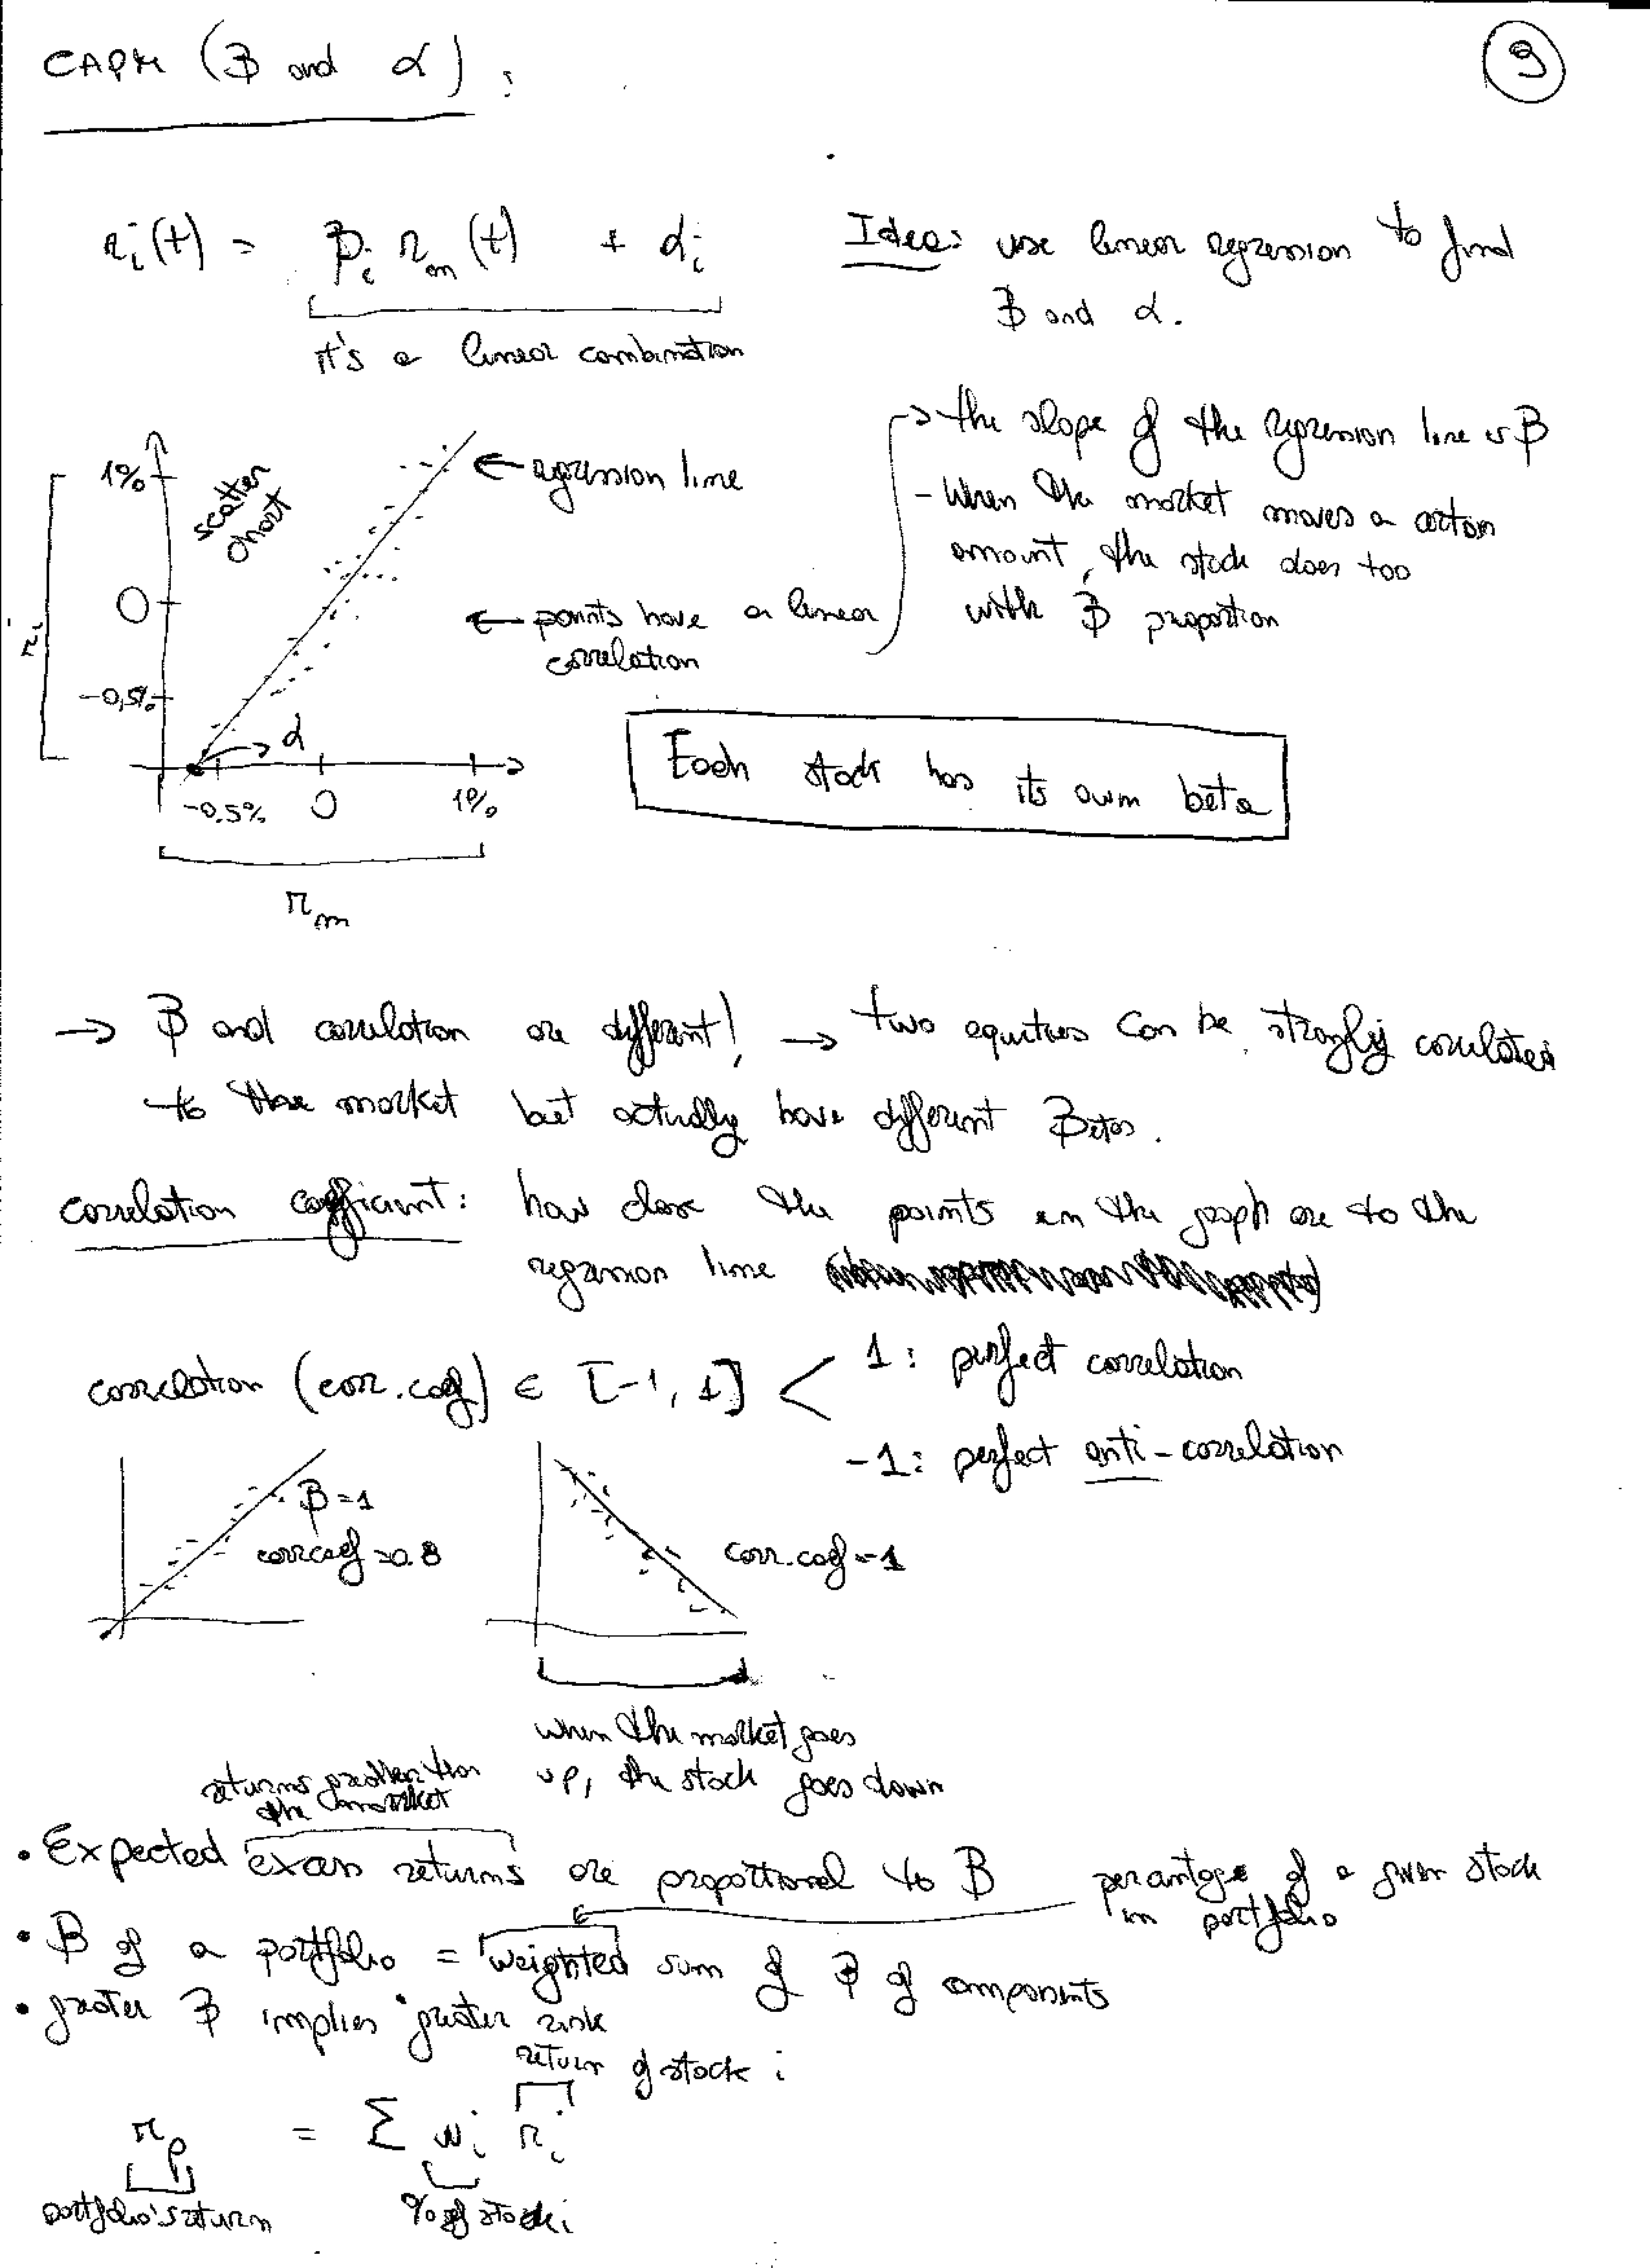 CAPM (β and α):
9
r_i(t) = β_i r_m(t) + α_i
it's a linear combination
Idea: use linear regression to find
β and α.
1%
0
-0,5%
r_i
scatter
chart
← regression line
← points have a linear
correlation
α
-0.5% 0 1%
r_m
→ the slope of the regression line is β
- When the market moves a certain
amount, the stock does too
with β proportion
Each stock has its own beta
→ β and correlation are different! → two equities can be strongly correlated
to the market but actually have different Betas.
correlation coefficient: how close the points in the graph are to the
regression line
correlation (corr.coef) ∈ [-1, 1] <
1: perfect correlation
-1: perfect anti-correlation
β=1
corrcoef=0.8
corr.coef=-1
when the market goes
up, the stock goes down
returns greater than
the market
• Expected excess returns are proportional to β
percentage of a given stock
in portfolio
• β of a portfolio = weighted sum of β of components
• greater β implies greater risk
return of stock i
r_p = Σ w_i r_i
portfolio's return
% of stock i